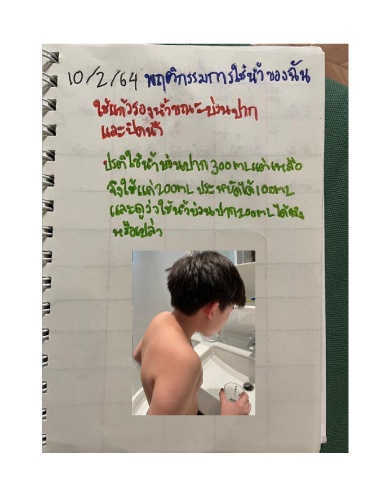 10/2/64 พฤติกรรมการใช้น้ำของฉัน
ใช้แก้วรองน้ำขณะบ้วนปาก
และปิดน้ำ
ปรกติใช้น้ำบ้วนปาก 300mL แต่เหลือ
จึงใช้แค่ 200mL ประหยัดได้ 100mL
และดูว่าใช้น้ำบ้วนปาก 200mL ได้จริง
หรือเปล่า